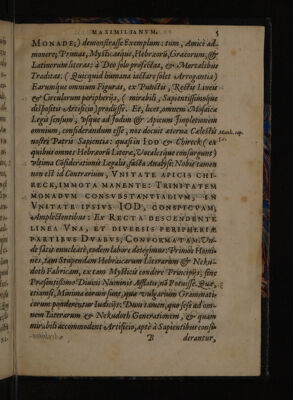 MAXIMILIANVM. 5
MONADE;) demonstrasse Exemplum: tum, Amicè ad-
monere, Primas, Mysticasque, Hebræorũ, Græcorum, &
Latinorum literas; à Deo solo profectas, & Mortalibus
Traditas. ( Quicquid humana iactare solet Arrogantia)
Earumque omnium Figuras, ex Punctis, Rectis Lineis
& Circulorum peripherijs, ( mirabili, Sapientissimoque
dispositis Artificio) prodijsse. Et, licet, omnem Mosaicæ
Legis sensum, vsque ad Iodim & Apicum Impletionem
omnium, considerandum esse, nos docuit æterna Cælestis
nostri Patris Sapientia: quasi in IOD & Chireck ( ex
quibus omnes Hebræorũ Literæ, Vocalesque consurgunt)
vltima Cõsiderationis Legalis, facta Analysi: Nobis tamen
non est id Contrarium, VNITATE APICIS CHI-
RECK, IMMOTA MANENTE: TRINITATEM
MONADVM CONSVBSTANTIALIVM, IN
VNITATE IPSIVS IOD, CONSPICVAM,
Amplectentibus: EX RECTA DESCENDENTE
LINEA VNA, ET DIVERSIS PERIPHERIÆ
PARTIBVS DVABVS, CONFORMATAM. Un-
de facile enucleari, eodem labore deteximus: Primùm Homi-
nes, tam Stupendam Hebraicarum Literarum & Neku-
doth Fabricam, ex tam Mysticis condere Principijs; sine
Præsentissimo Diuini Numinis Afflatu, nõ Potuisse. Quæ,
etiamsi, Minima eorum sunt, quæ vulgarium Grammati-
corum ponderentur Iudicijs: Dum tamen, quæ sese ad om-
nem Literarum & Nekudoth Generationem, & quam
mirabili accommodent Artificio, aptè à Sapientibus consi-
B derantur,
Matth. cap.